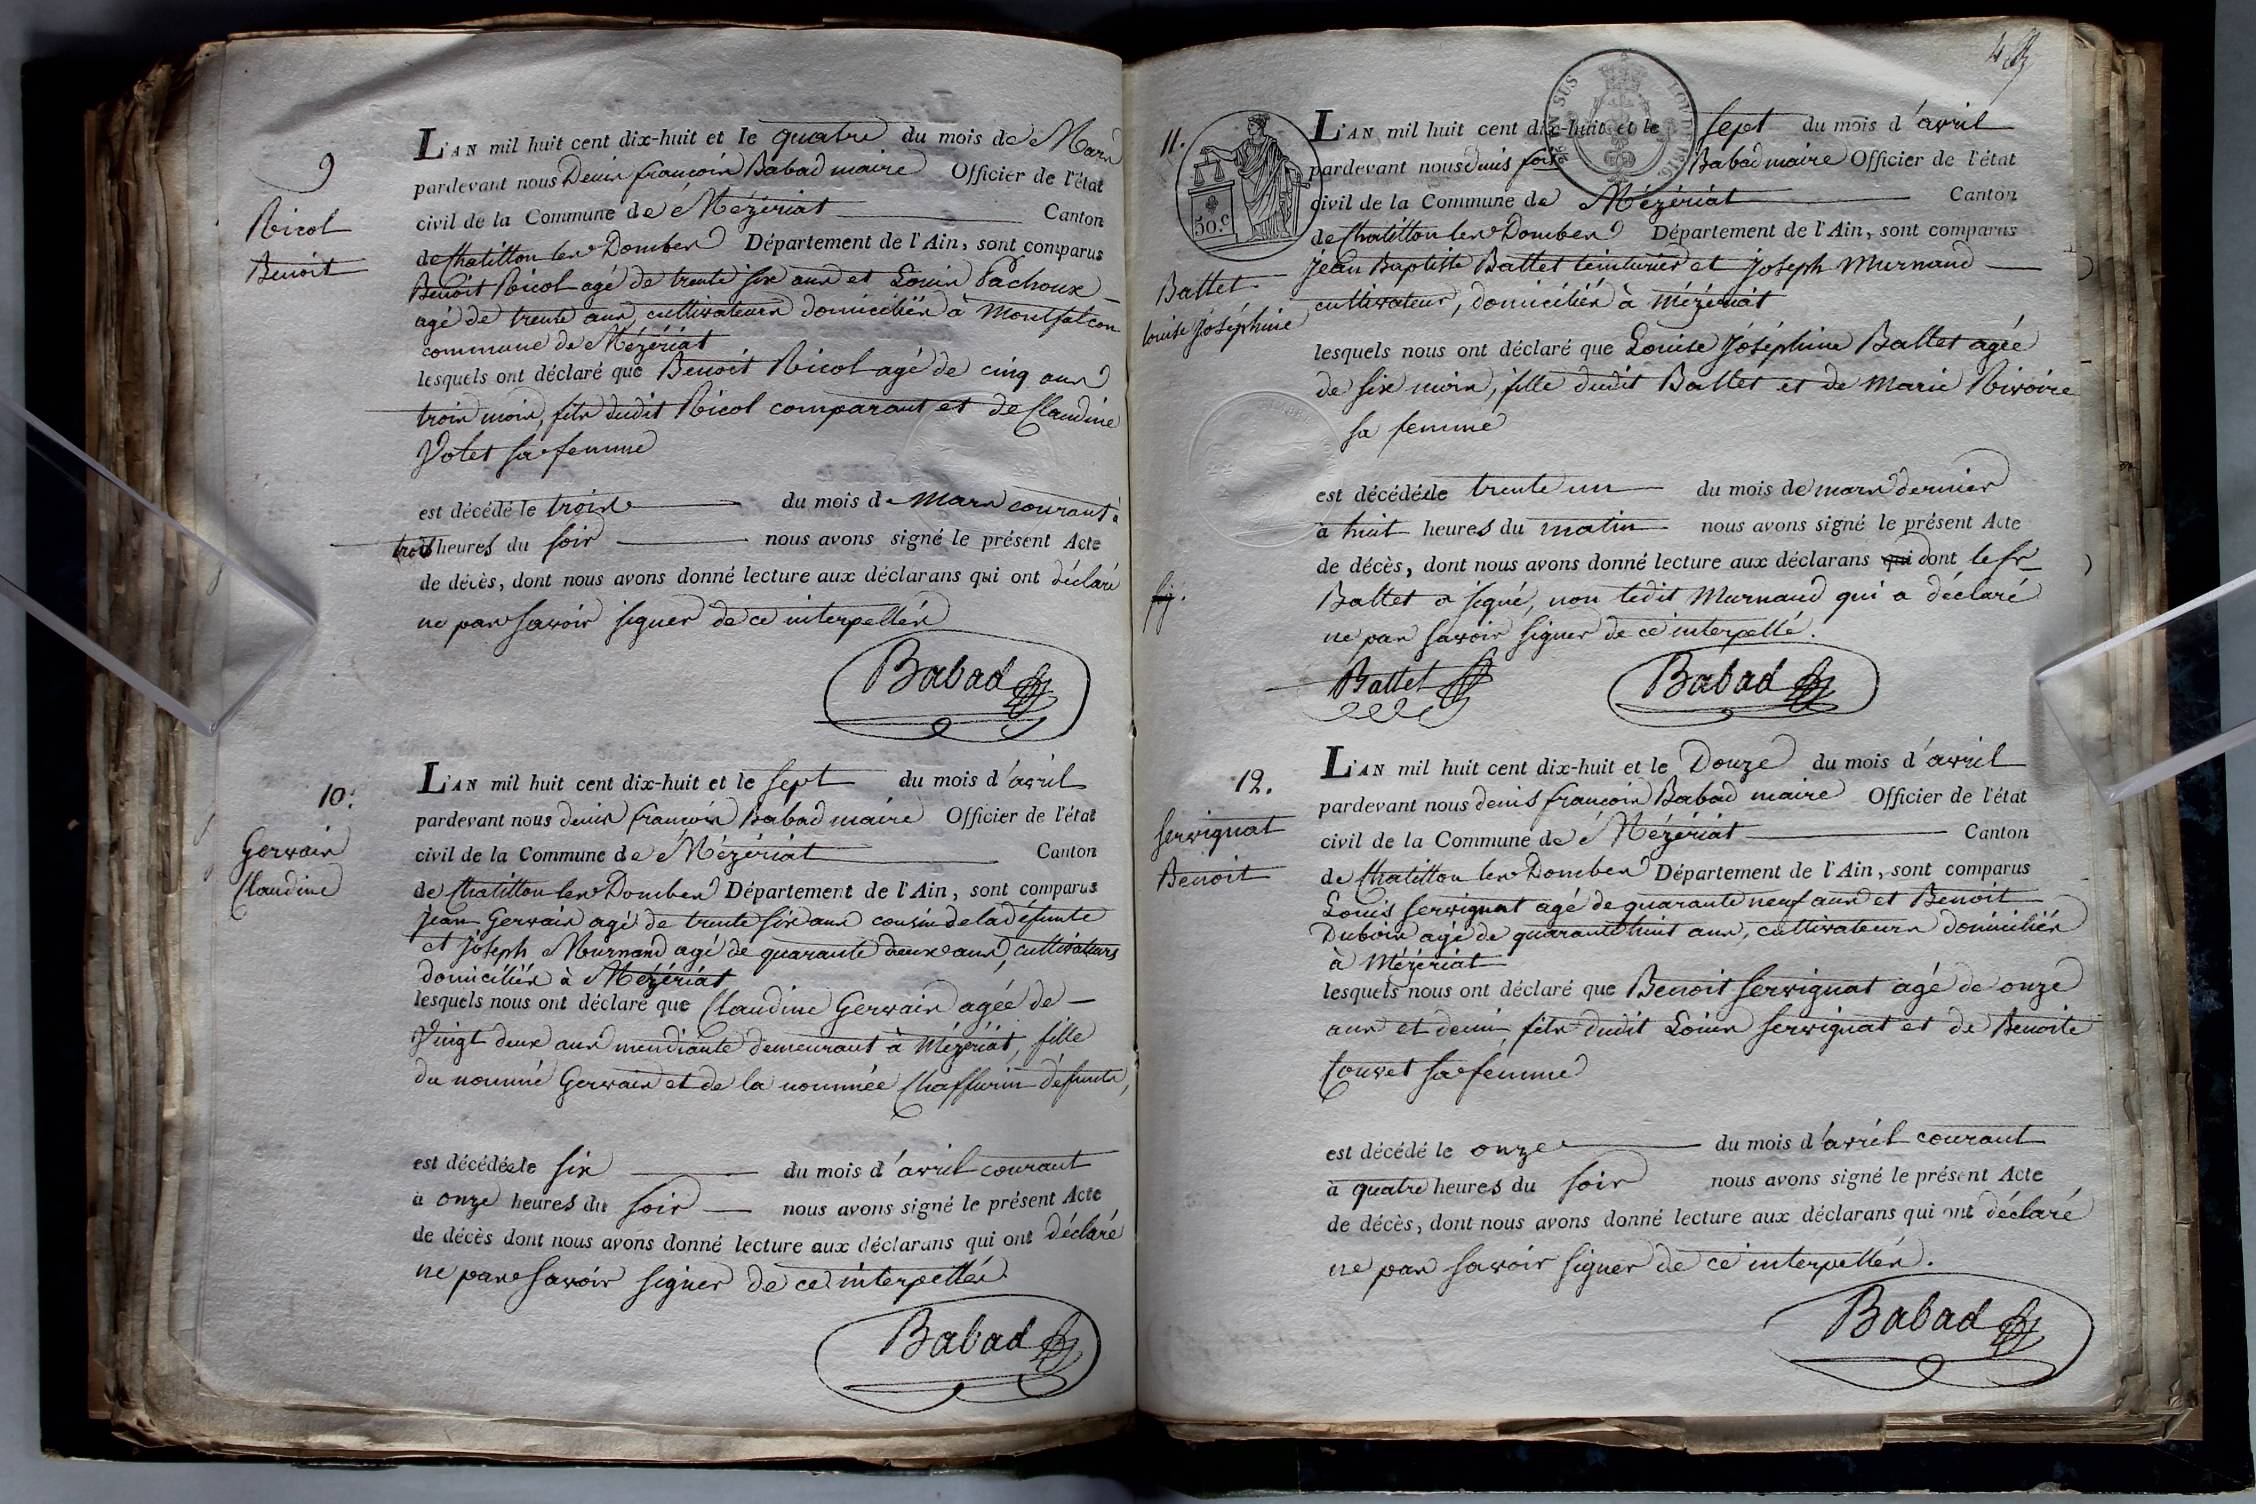 9
Nicol
Benoit
L'AN mil huit cent dix-huit et le quatre du mois de Mars
pardevant nous Denis françois Babad maire Officier de l'état
civil de la Commune de Mézériat Canton
de Chatillon les Dombes Département de l'Ain, sont comparus
Benoit Nicol agé de trente six ans et Louis Pachoux
agé de trente ans cultivateurs domiciliés à Montfalcon
commune de Mézériat
lesquels ont déclaré que Benoit Nicol agé de cinq ans
trois mois, fils dudit Nicol comparant et de Claudine
Volet sa femme
est décédé le trois du mois de Mars courant à
trois heures du soir nous avons signé le présent Acte
de décès, dont nous avons donné lecture aux déclarans qui ont déclaré
ne pas savoir signer de ce interpellés
Babad
10.
Gervais
Claudine
L'AN mil huit cent dix-huit et le sept du mois d'avril
pardevant nous denis françois Babad maire Officier de l'état
civil de la Commune de Mézériat Canton
de Chatillon les Dombes Département de l'Ain, sont comparus
jean Gervais agé de trente six ans cousin de la défunte
et joseph Murnand agé de quarante deux ans, cultivateurs
domiciliés à Mézériat
lesquels nous ont déclaré que Claudine Gervais agée de
Vingt deux ans mendiante demeurant à Mézériat, fille
du nommé Gervais et de la nommée Chaffurin défunte,
est décédée le six du mois d'avril courant
à onze heures du soir nous avons signé le présent Acte
de décès dont nous avons donné lecture aux déclarans qui ont déclaré
ne pas savoir signer de ce interpellés
Babad
11.
50.c
Ballet
louise joséphine
L'AN mil huit cent dix-huit et le sept du mois d'avril
pardevant nous denis fois Babad maire Officier de l'état
civil de la Commune de Mézériat Canton
de Chatillon les Dombes Département de l'Ain, sont comparus
jean Baptiste Ballet teinturier et joseph Murnand
cultivateur, domiciliés à Mézériat
lesquels nous ont déclaré que Louise joséphine Ballet agée
de six mois, fille dudit Ballet et de Marie Rivoire
sa femme
est décédée le trente un du mois de mars dernier
à huit heures du matin nous avons signé le présent Acte
de décès, dont nous avons donné lecture aux déclarans qui dont le sr
Ballet a signé, non ledit Murnand qui a déclaré
ne pas savoir signer de ce interpellé.
Ballet Babad
12.
Servignat
Benoit
L'AN mil huit cent dix-huit et le Douze du mois d'avril
pardevant nous denis françois Babad maire Officier de l'état
civil de la Commune de Mézériat Canton
de Chatillon les Dombes Département de l'Ain, sont comparus
Louis Servignat agé de quarante neuf ans et Benoit
Dubois agé de quarante huit ans, cultivateurs domiciliés
à Mézériat
lesquels nous ont déclaré que Benoit Servignat agé de onze
ans et demi, fils dudit Louis Servignat et de Benoite
Couvet sa femme
est décédé le onze du mois d'avril courant
à quatre heures du soir nous avons signé le présent Acte
de décès, dont nous avons donné lecture aux déclarans qui ont déclaré
ne pas savoir signer de ce interpellés.
Babad